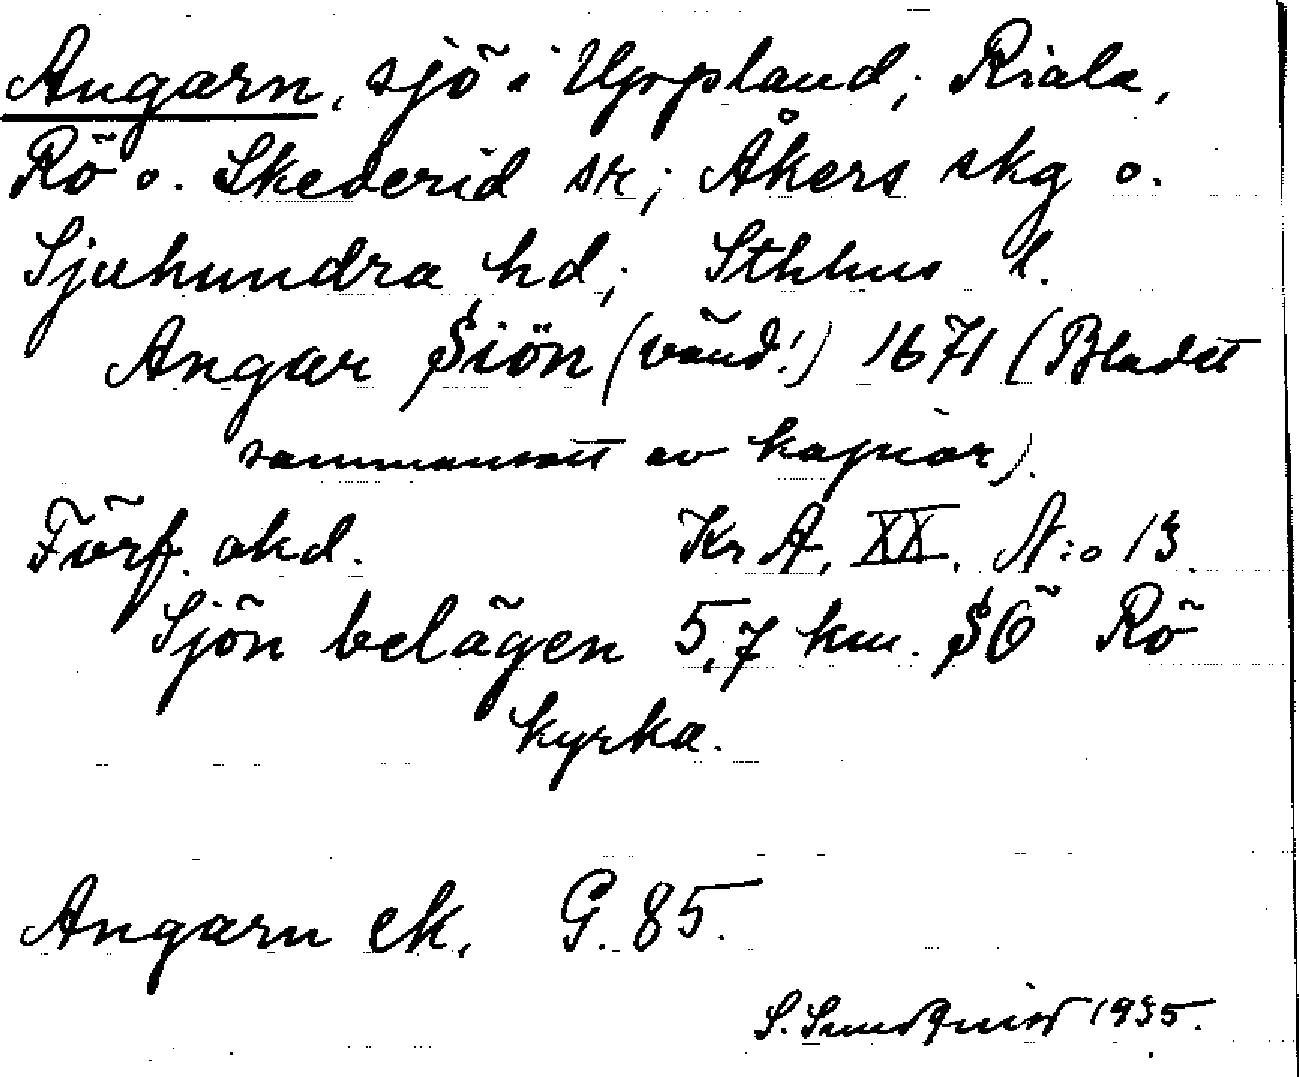 Angarn, sjö i Uppland; Riala,
Rö o. Skederid sr; Åkers skg o.
Sjuhundra hd; Sthlms l.
Angar Siön (vänd!) 1671 (Bladet
sammansatt av kopior).
Förf. okd. Kr A. XX. N:o 13.
Sjön belägen 5,7 km. SÖ Rö
kyrka.
Angarn ek. G. 85.
S. Sundquist 1935.